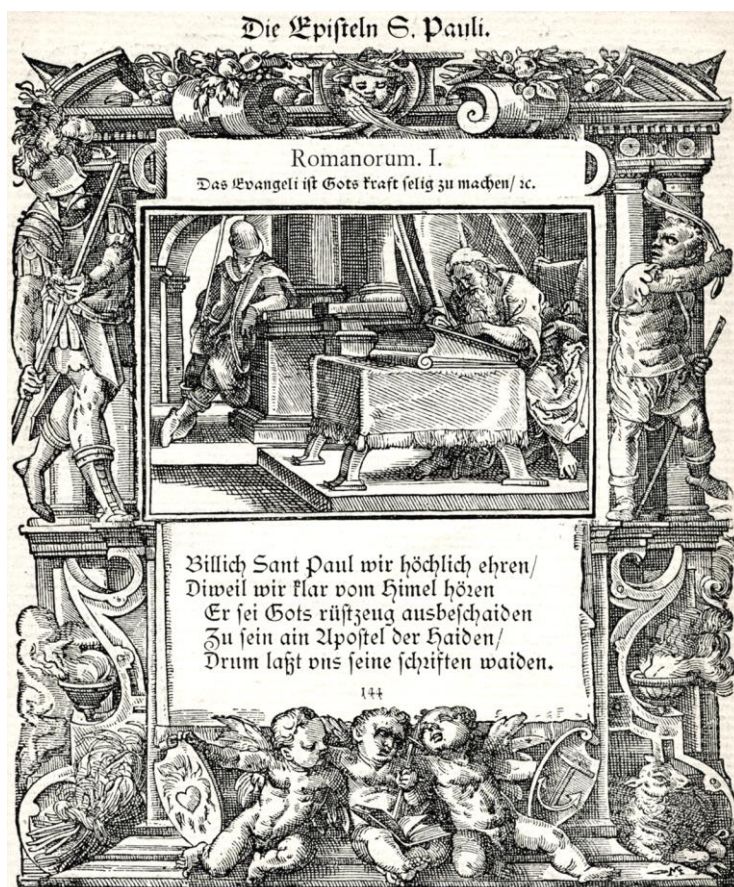 Die Episteln S. Pauli.
Romanorum. I.
Das Evangeli ist Gots kraft selig zu machen/ ꝛc.
Billich Sant Paul wir höchlich ehren/
Diweil wir klar vom Himel hören
Er sei Gots rüstzeug ausbeschaiden
Zu sein ain Apostel der Haiden/
Drum laßt vns seine schriften waiden.
144